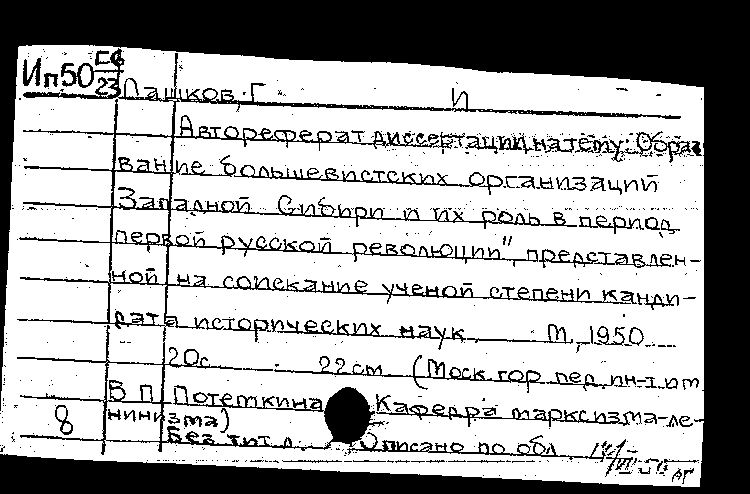 Ип50 Г6
23
Пашков, Г И
Автореферат диссертации на тему: Образо
вание большевистских организаций
Западной Сибири и их роль в период
первой русской революции", представлен-
ной на соискание ученой степени канди-
дата исторических наук. М., 1950
20с. 22см (Моск гор пед ин-т им
В П Потемкина Кафедра марксизма-ле-
нинизма)
8 Без тит л. Описано по обл